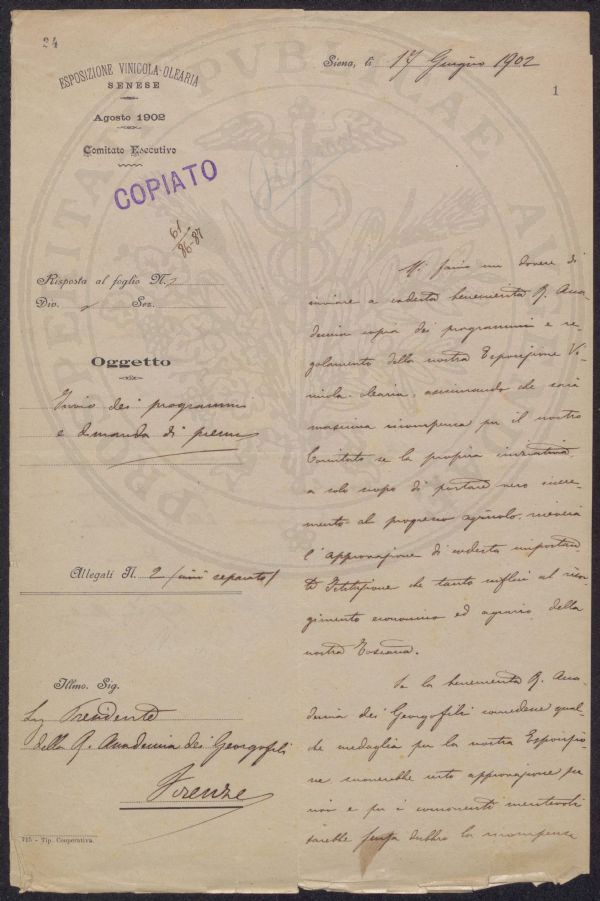 24
ESPOSIZIONE VINICOLA-OLEARIA
SENESE
Agosto 1902
Comitato Esecutivo
COPIATO
61
86-87
Risposta al foglio N.
Div. Sez.
Oggetto
Invio dei programmi
e domanda di premi
Allegati N. 2 (invii separato)
Illmo. Sig.
Sig Presidente
della R. Accademia dei Georgofili
Firenze
715 - Tip. Cooperativa.
Siena, li 17 Giugno 1902
1
Mi faccio un dovere di
inviare a codesta benemerita R. Acca
demia copia dei programmi e re-
golamento della nostra Esposizione Vi
nicola-olearia, assicurando che sarà
massima ricompensa per il nostro
Comitato se la propria iniziativa
a solo scopo di portare vero incre-
mento al progresso agricolo, meriterà
l'approvazione di codesta importan
te Istituzione che tanto influì al risor
gimento economico ed agrario della
nostra Toscana.
Se la benemerita R. Acca-
demia dei Georgofili concedesse qual-
che medaglia per la nostra Esposizio
ne, suonerebbe alta approvazione per
noi e per i concorrenti meritevoli
sarebbe senza dubbio la ricompensa